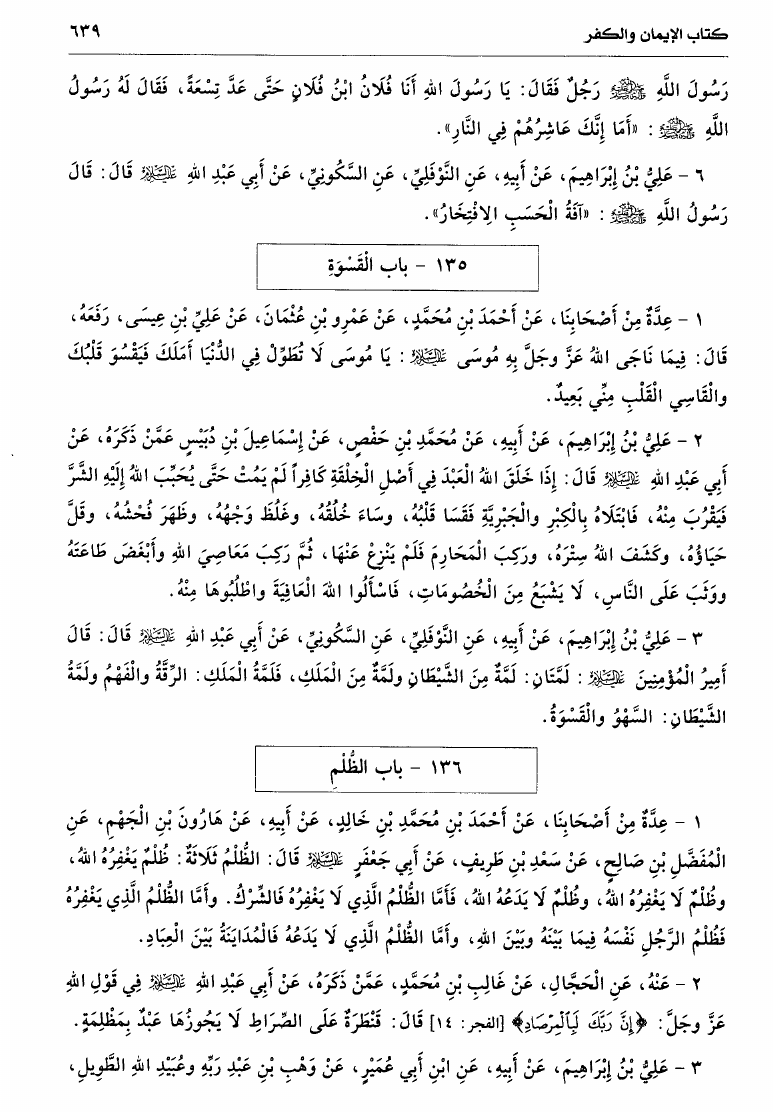 كتاب الإيمان والكفر ٦٣٩
رَسُولَ اللَّهِ ﷺ رَجُلٌ فَقَالَ: يَا رَسُولَ اللهِ أَنَا فُلَانُ ابْنُ فُلَانٍ حَتَّى عَدَّ تِسْعَةً، فَقَالَ لَهُ رَسُولُ
اللَّهِ ﷺ : «أَمَا إِنَّكَ عَاشِرُهُمْ فِي النَّارِ».
٦ - عَلِيُّ بْنُ إِبْرَاهِيمَ، عَنْ أَبِيهِ، عَنِ النَّوْفَلِيِّ، عَنِ السَّكُونِيِّ، عَنْ أَبِي عَبْدِ اللهِ عَلَيْهِ السَّلَامُ قَالَ: قَالَ
رَسُولُ اللَّهِ ﷺ : «آفَةُ الْحَسَبِ الِافْتِخَارُ».
١٣٥ - باب الْقَسْوَةِ
١ - عِدَّةٌ مِنْ أَصْحَابِنَا، عَنْ أَحْمَدَ بْنِ مُحَمَّدٍ، عَنْ عَمْرِو بْنِ عُثْمَانَ، عَنْ عَلِيِّ بْنِ عِيسَى، رَفَعَهُ،
قَالَ: فِيمَا نَاجَى اللهُ عَزَّ وجَلَّ بِهِ مُوسَى عَلَيْهِ السَّلَامُ : يَا مُوسَى لَا تُطَوِّلْ فِي الدُّنْيَا أَمَلَكَ فَيَقْسُوَ قَلْبُكَ
والْقَاسِي الْقَلْبِ مِنِّي بَعِيدٌ.
٢ - عَلِيُّ بْنُ إِبْرَاهِيمَ، عَنْ أَبِيهِ، عَنْ مُحَمَّدِ بْنِ حَفْصٍ، عَنْ إِسْمَاعِيلَ بْنِ دُبَيْسٍ عَمَّنْ ذَكَرَهُ، عَنْ
أَبِي عَبْدِ اللهِ عَلَيْهِ السَّلَامُ قَالَ: إِذَا خَلَقَ اللهُ الْعَبْدَ فِي أَصْلِ الْخِلْقَةِ كَافِراً لَمْ يَمُتْ حَتَّى يُحَبِّبَ اللهُ إِلَيْهِ الشَّرَّ
فَيَقْرُبَ مِنْهُ، فَابْتَلَاهُ بِالْكِبْرِ والْجَبْرِيَّةِ فَقَسَا قَلْبُهُ، وسَاءَ خُلُقُهُ، وغَلُظَ وَجْهُهُ، وظَهَرَ فُحْشُهُ، وقَلَّ
حَيَاؤُهُ، وكَشَفَ اللهُ سِتْرَهُ، ورَكِبَ الْمَحَارِمَ فَلَمْ يَنْزِعْ عَنْهَا، ثُمَّ رَكِبَ مَعَاصِيَ اللهِ وأَبْغَضَ طَاعَتَهُ
ووَثَبَ عَلَى النَّاسِ، لَا يَشْبَعُ مِنَ الْخُصُومَاتِ، فَاسْأَلُوا اللهَ الْعَافِيَةَ واطْلُبُوهَا مِنْهُ.
٣ - عَلِيُّ بْنُ إِبْرَاهِيمَ، عَنْ أَبِيهِ، عَنِ النَّوْفَلِيِّ، عَنِ السَّكُونِيِّ، عَنْ أَبِي عَبْدِ اللهِ عَلَيْهِ السَّلَامُ قَالَ: قَالَ
أَمِيرُ الْمُؤْمِنِينَ عَلَيْهِ السَّلَامُ : لَمَّتَانِ: لَمَّةٌ مِنَ الشَّيْطَانِ ولَمَّةٌ مِنَ الْمَلَكِ، فَلَمَّةُ الْمَلَكِ: الرِّقَّةُ والْفَهْمُ ولَمَّةُ
الشَّيْطَانِ: السَّهْوُ والْقَسْوَةُ.
١٣٦ - باب الظُّلْمِ
١ - عِدَّةٌ مِنْ أَصْحَابِنَا، عَنْ أَحْمَدَ بْنِ مُحَمَّدِ بْنِ خَالِدٍ، عَنْ أَبِيهِ، عَنْ هَارُونَ بْنِ الْجَهْمِ، عَنِ
الْمُفَضَّلِ بْنِ صَالِحٍ، عَنْ سَعْدِ بْنِ طَرِيفٍ، عَنْ أَبِي جَعْفَرٍ عَلَيْهِ السَّلَامُ قَالَ: الظُّلْمُ ثَلَاثَةٌ: ظُلْمٌ يَغْفِرُهُ اللهُ،
وظُلْمٌ لَا يَغْفِرُهُ اللهُ، وظُلْمٌ لَا يَدَعُهُ اللهُ، فَأَمَّا الظُّلْمُ الَّذِي لَا يَغْفِرُهُ فَالشِّرْكُ. وأَمَّا الظُّلْمُ الَّذِي يَغْفِرُهُ
فَظُلْمُ الرَّجُلِ نَفْسَهُ فِيمَا بَيْنَهُ وبَيْنَ اللهِ، وأَمَّا الظُّلْمُ الَّذِي لَا يَدَعُهُ فَالْمُدَايَنَةُ بَيْنَ الْعِبَادِ.
٢ - عَنْهُ، عَنِ الْحَجَّالِ، عَنْ غَالِبِ بْنِ مُحَمَّدٍ، عَمَّنْ ذَكَرَهُ، عَنْ أَبِي عَبْدِ اللهِ عَلَيْهِ السَّلَامُ فِي قَوْلِ اللهِ
عَزَّ وجَلَّ: ﴿إِنَّ رَبَّكَ لَبِالْمِرْصَادِ﴾ [الفجر: ١٤] قَالَ: قَنْطَرَةٌ عَلَى الصِّرَاطِ لَا يَجُوزُهَا عَبْدٌ بِمَظْلِمَةٍ.
٣ - عَلِيُّ بْنُ إِبْرَاهِيمَ، عَنْ أَبِيهِ، عَنِ ابْنِ أَبِي عُمَيْرٍ، عَنْ وَهْبِ بْنِ عَبْدِ رَبِّهِ وعُبَيْدِ اللهِ الطَّوِيلِ،